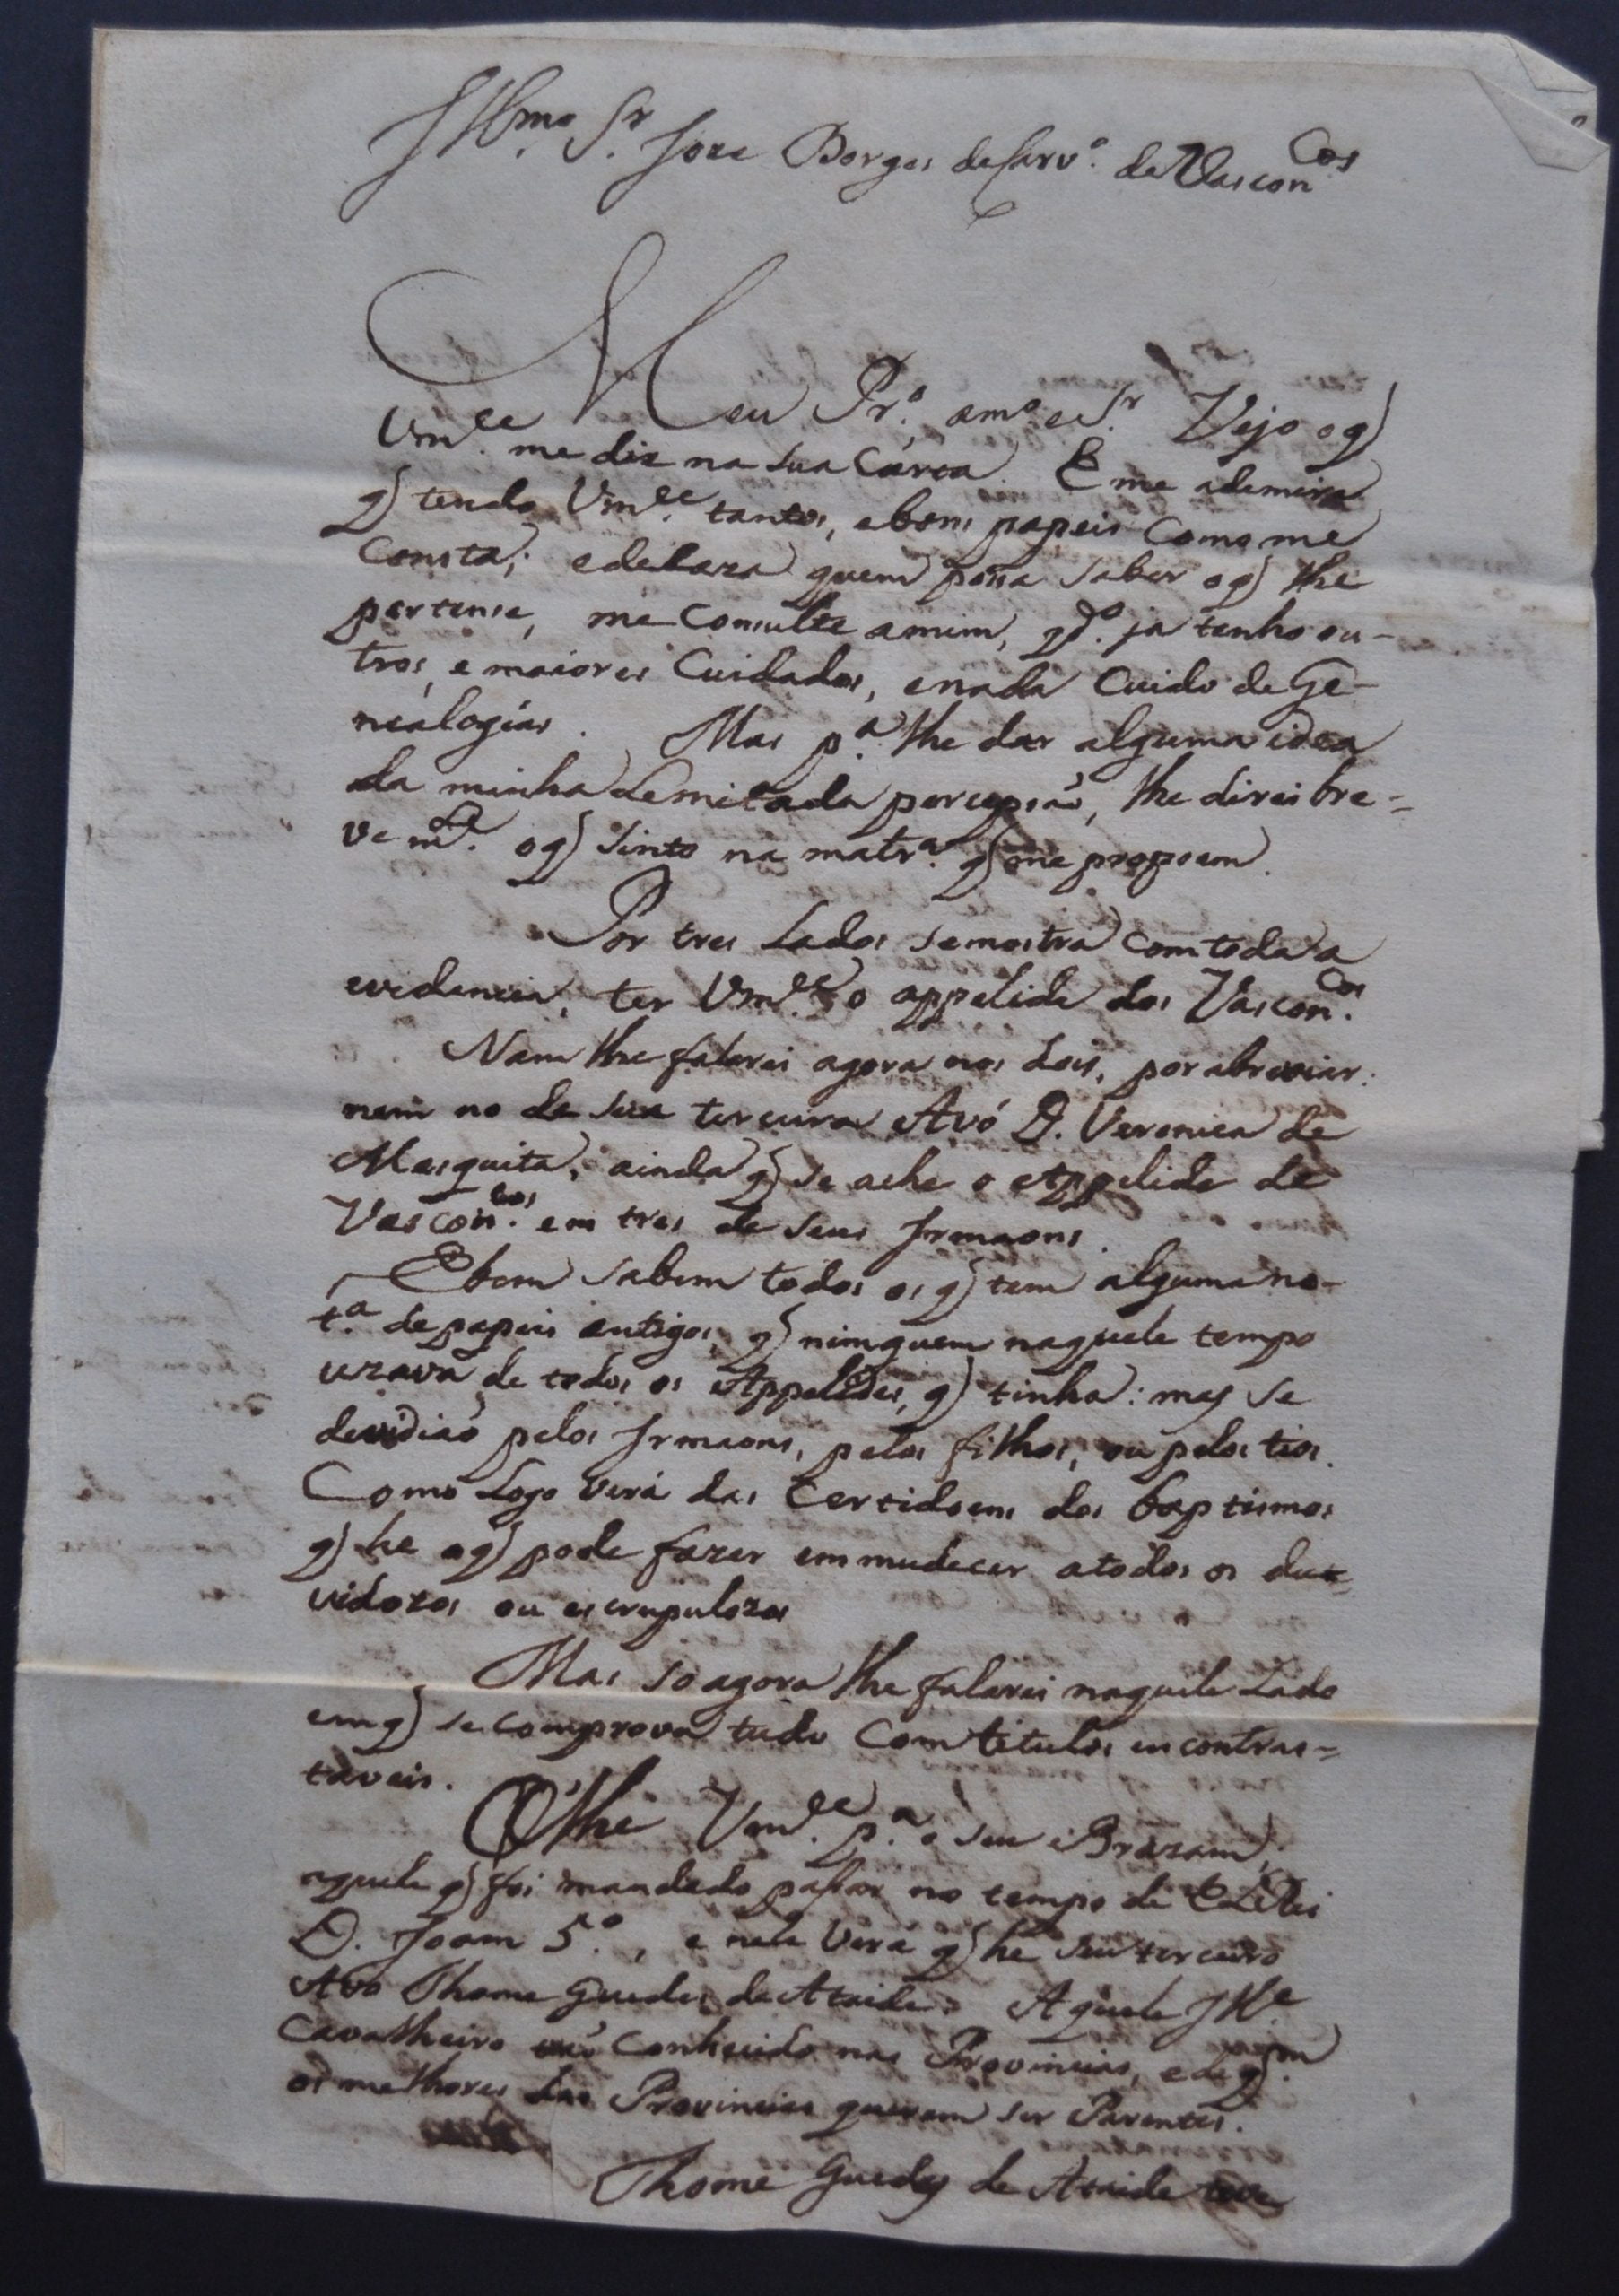 Illmo. Sr. Joze Borges de Carvo. de Vasconcos
Meu Pro. amo. e Sr. Vejo o q
Vmce. me diz na sua Carta. E me ademira
q tendo Vmce. tantos, e bons papeis Como me
Consta; e de Caza quem possa saber o q lhe
pertense, me Consulte a mim, qdo. ja tenho ou-
tros, e maiores Cuidados, e nada Cuido de Ge-
nealogias. Mas pa. lhe dar alguma idea
da minha Lemitada percepsaõ, lhe direi bre-
vemte. o q sinto na matra. q me propoem.
Por tres Lados se mostra com toda a
evidencia, ter Vmce. o appelido dos Vasconcos.
Nam lhe falarei agora nos dois, por abreviar:
nem no de sua terceira Avó D. Veronica de
Mesquita, ainda q se ache o Appelido de
Vasconcos. em tres de seus Irmaons.
E bem sabem todos os q tem alguma no-
ta. de papeis antigos, q nimguem naquele tempo
uzava de todos os Appelidos, q tinha: mas se
devidiaõ pelos Irmaons, pelos filhos, ou pelos tios.
Como Logo verá das Certidoens dos baptismos
q he o q pode fazer emmudecer a todos os du-
vidozos ou escrupulozos
Mas so agora lhe falarei naquele Lado
em q se comprova tudo Com titulos incontras-
taveis.
Olhe Vmce. pa. o seu Brazam,
aquele q foi mandado passar no tempo de ElRei
D. Joam 5o., e nele Verá q he seu terceiro
Avo Thome Guedes de Ataide. Aquele Ille.
Cavalheiro Conhecido nas Provincias, e de qm.
os melhores das Provincias querem ser Parentes.
Thome Guedes de Ataide teve